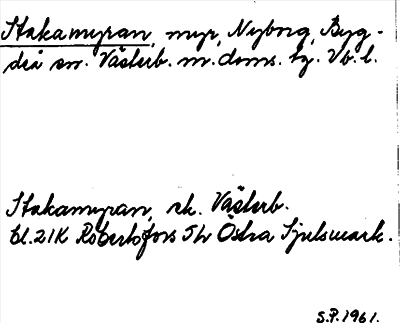 Stakamyran, myr, Nyborg, Byg-
deå sn. Västerb. m. doms. tg. Vb. l.
Stakamyran, sk. Västerb.
bl. 21K Robertsfors 5h Östra Sjulsmark.
S.P. 1961.